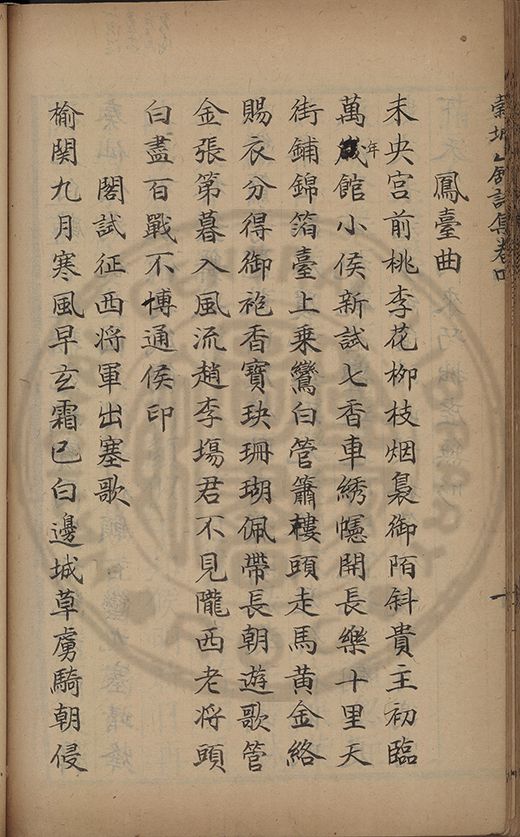 鳳臺曲
未央宫前桃李花柳枝烟裊御陌斜貴主初臨
萬年館小侯新試七香車綉幰開長樂十里天
街鋪錦箔臺上乗鸞白管簫樓頭走馬黄金絡
賜衣分得御袍香寶玦珊瑚佩帶長朝遊歌管
金張第暮入風流趙李塲君不見隴西老将頭
白盡百戰不博通侯印
閣試征西将軍出塞歌
榆関九月寒風早玄霜已白邊城草虜騎朝侵